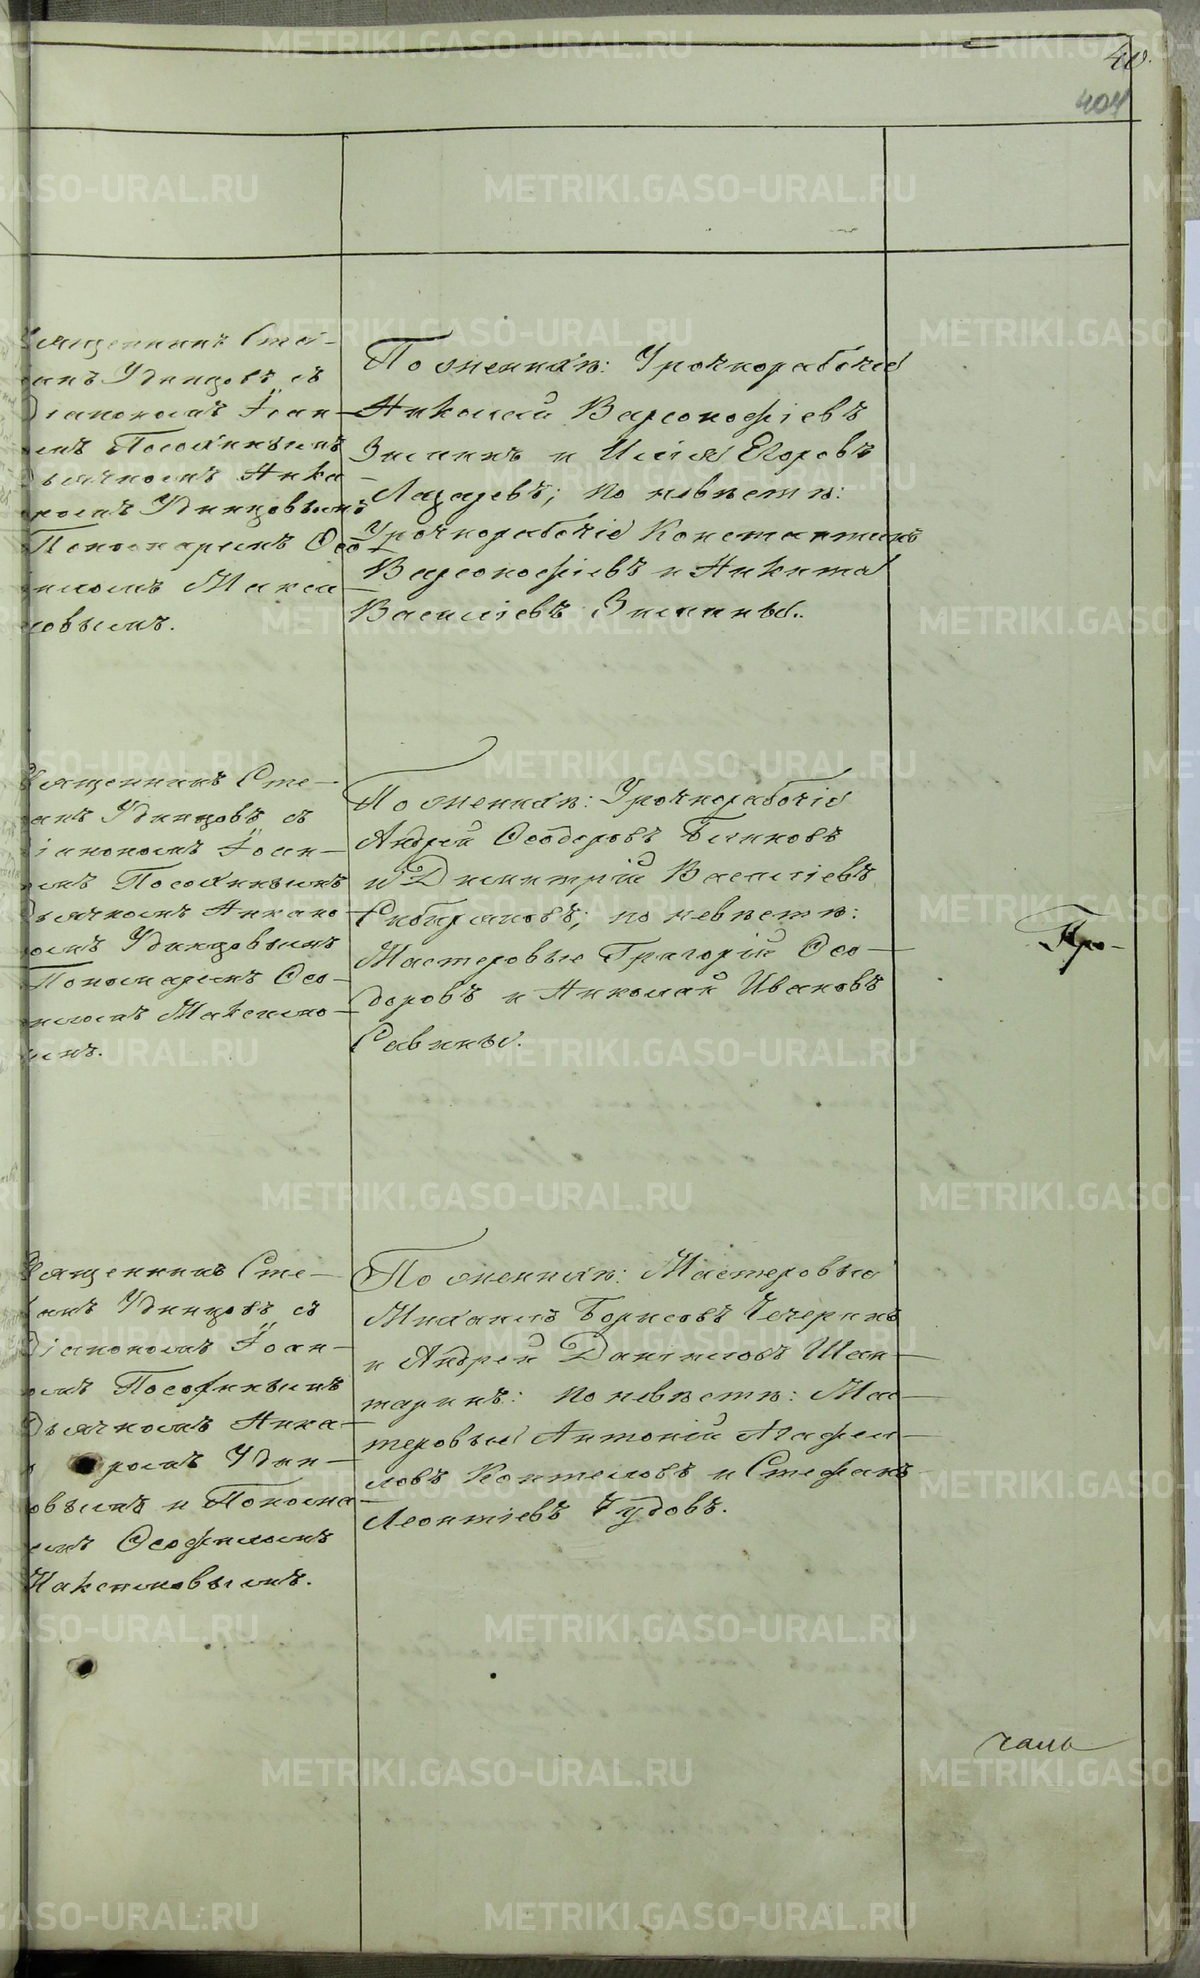 40.
404
Священникъ Сте-
фанъ Удинцовъ съ
Діакономъ Іоан-
омъ
Дьячкомъ Ника-
норомъ Удинцовымъ
Пономаремъ Өео-
филомъ Макси-
мовымъ.
По женихѣ: Урочнорабочіе
Николай Варсонофіевъ
Зиминъ и Илія Егоровъ
Лазаревъ; по невѣстѣ:
Урочнорабочіе Константинъ
Варсонофіевъ и Никита
Василіевъ Зимины.
Священникъ Сте-
фанъ Удинцовъ съ
Діакономъ Іоан-
омъ
Дьячкомъ Никано-
ромъ Удинцовымъ
Пономаремъ Өео-
филомъ Максимо-
вымъ.
По женихѣ: Урочнорабочіе
Андрей Өеодоровъ
и Димитрій Василіевъ
Сибиряковъ; по невѣстѣ:
Мастеровые Григорій Өео-
доровъ и Николай Ивановъ
Савины.
Про-
Священникъ Сте-
фанъ Удинцовъ съ
Діакономъ Іоан-
омъ
Дьячкомъ Ника-
норомъ Удин-
овымъ и Понома-
емъ Өеофиломъ
Максимовымъ.
По женихѣ: Мастеровые
Михаилъ Борисовъ Чечеринъ
и Андрей Даниловъ Шан-
таринъ: по невѣстѣ: Мас-
теровые Антоній Агафи-
ловъ Коптеловъ и Стефанъ
Леонтіевъ Чудовъ.
METRIKI.GASO-URAL.RU